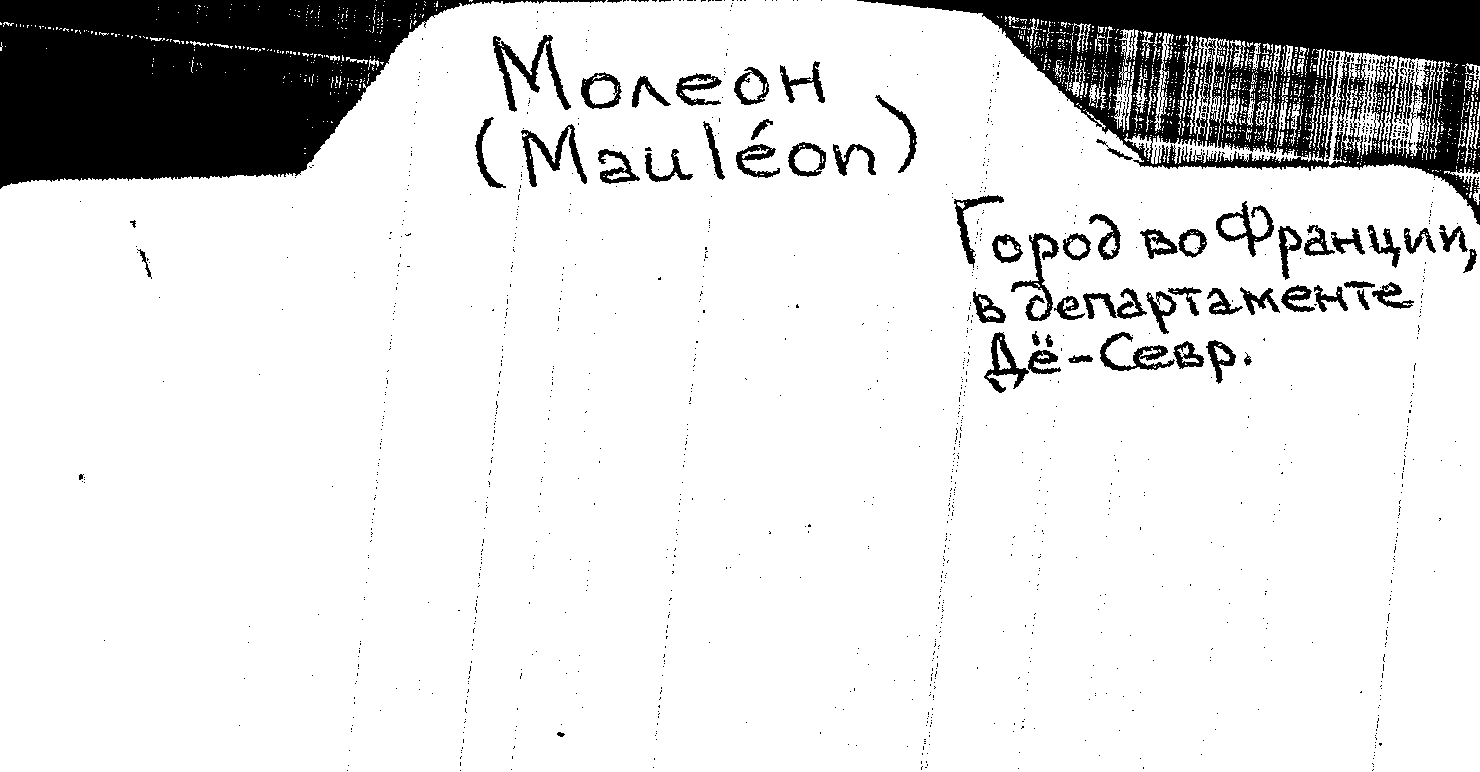 Молеон
(Mauléon)
Город во Франции,
в департаменте
Дё-Севр.